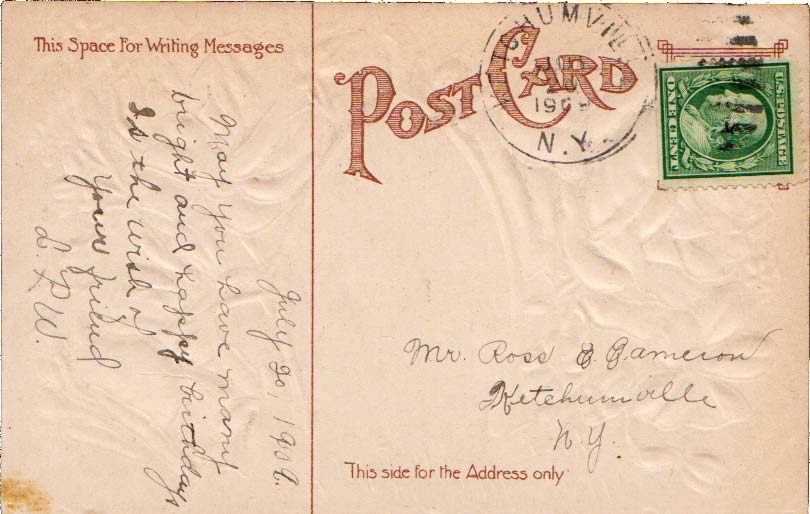 This Space For Writing Messages
POST CARD
HUMVILL
1909
N.Y.
U.S. POSTAGE
ONE CENT
July 20, 1909.
May You have many
bright and happy birthdays
Is the wish of
Your friend
L. P. W.
Mr. Ross E Cameron
Ketchumville
N.Y.
This side for the Address only